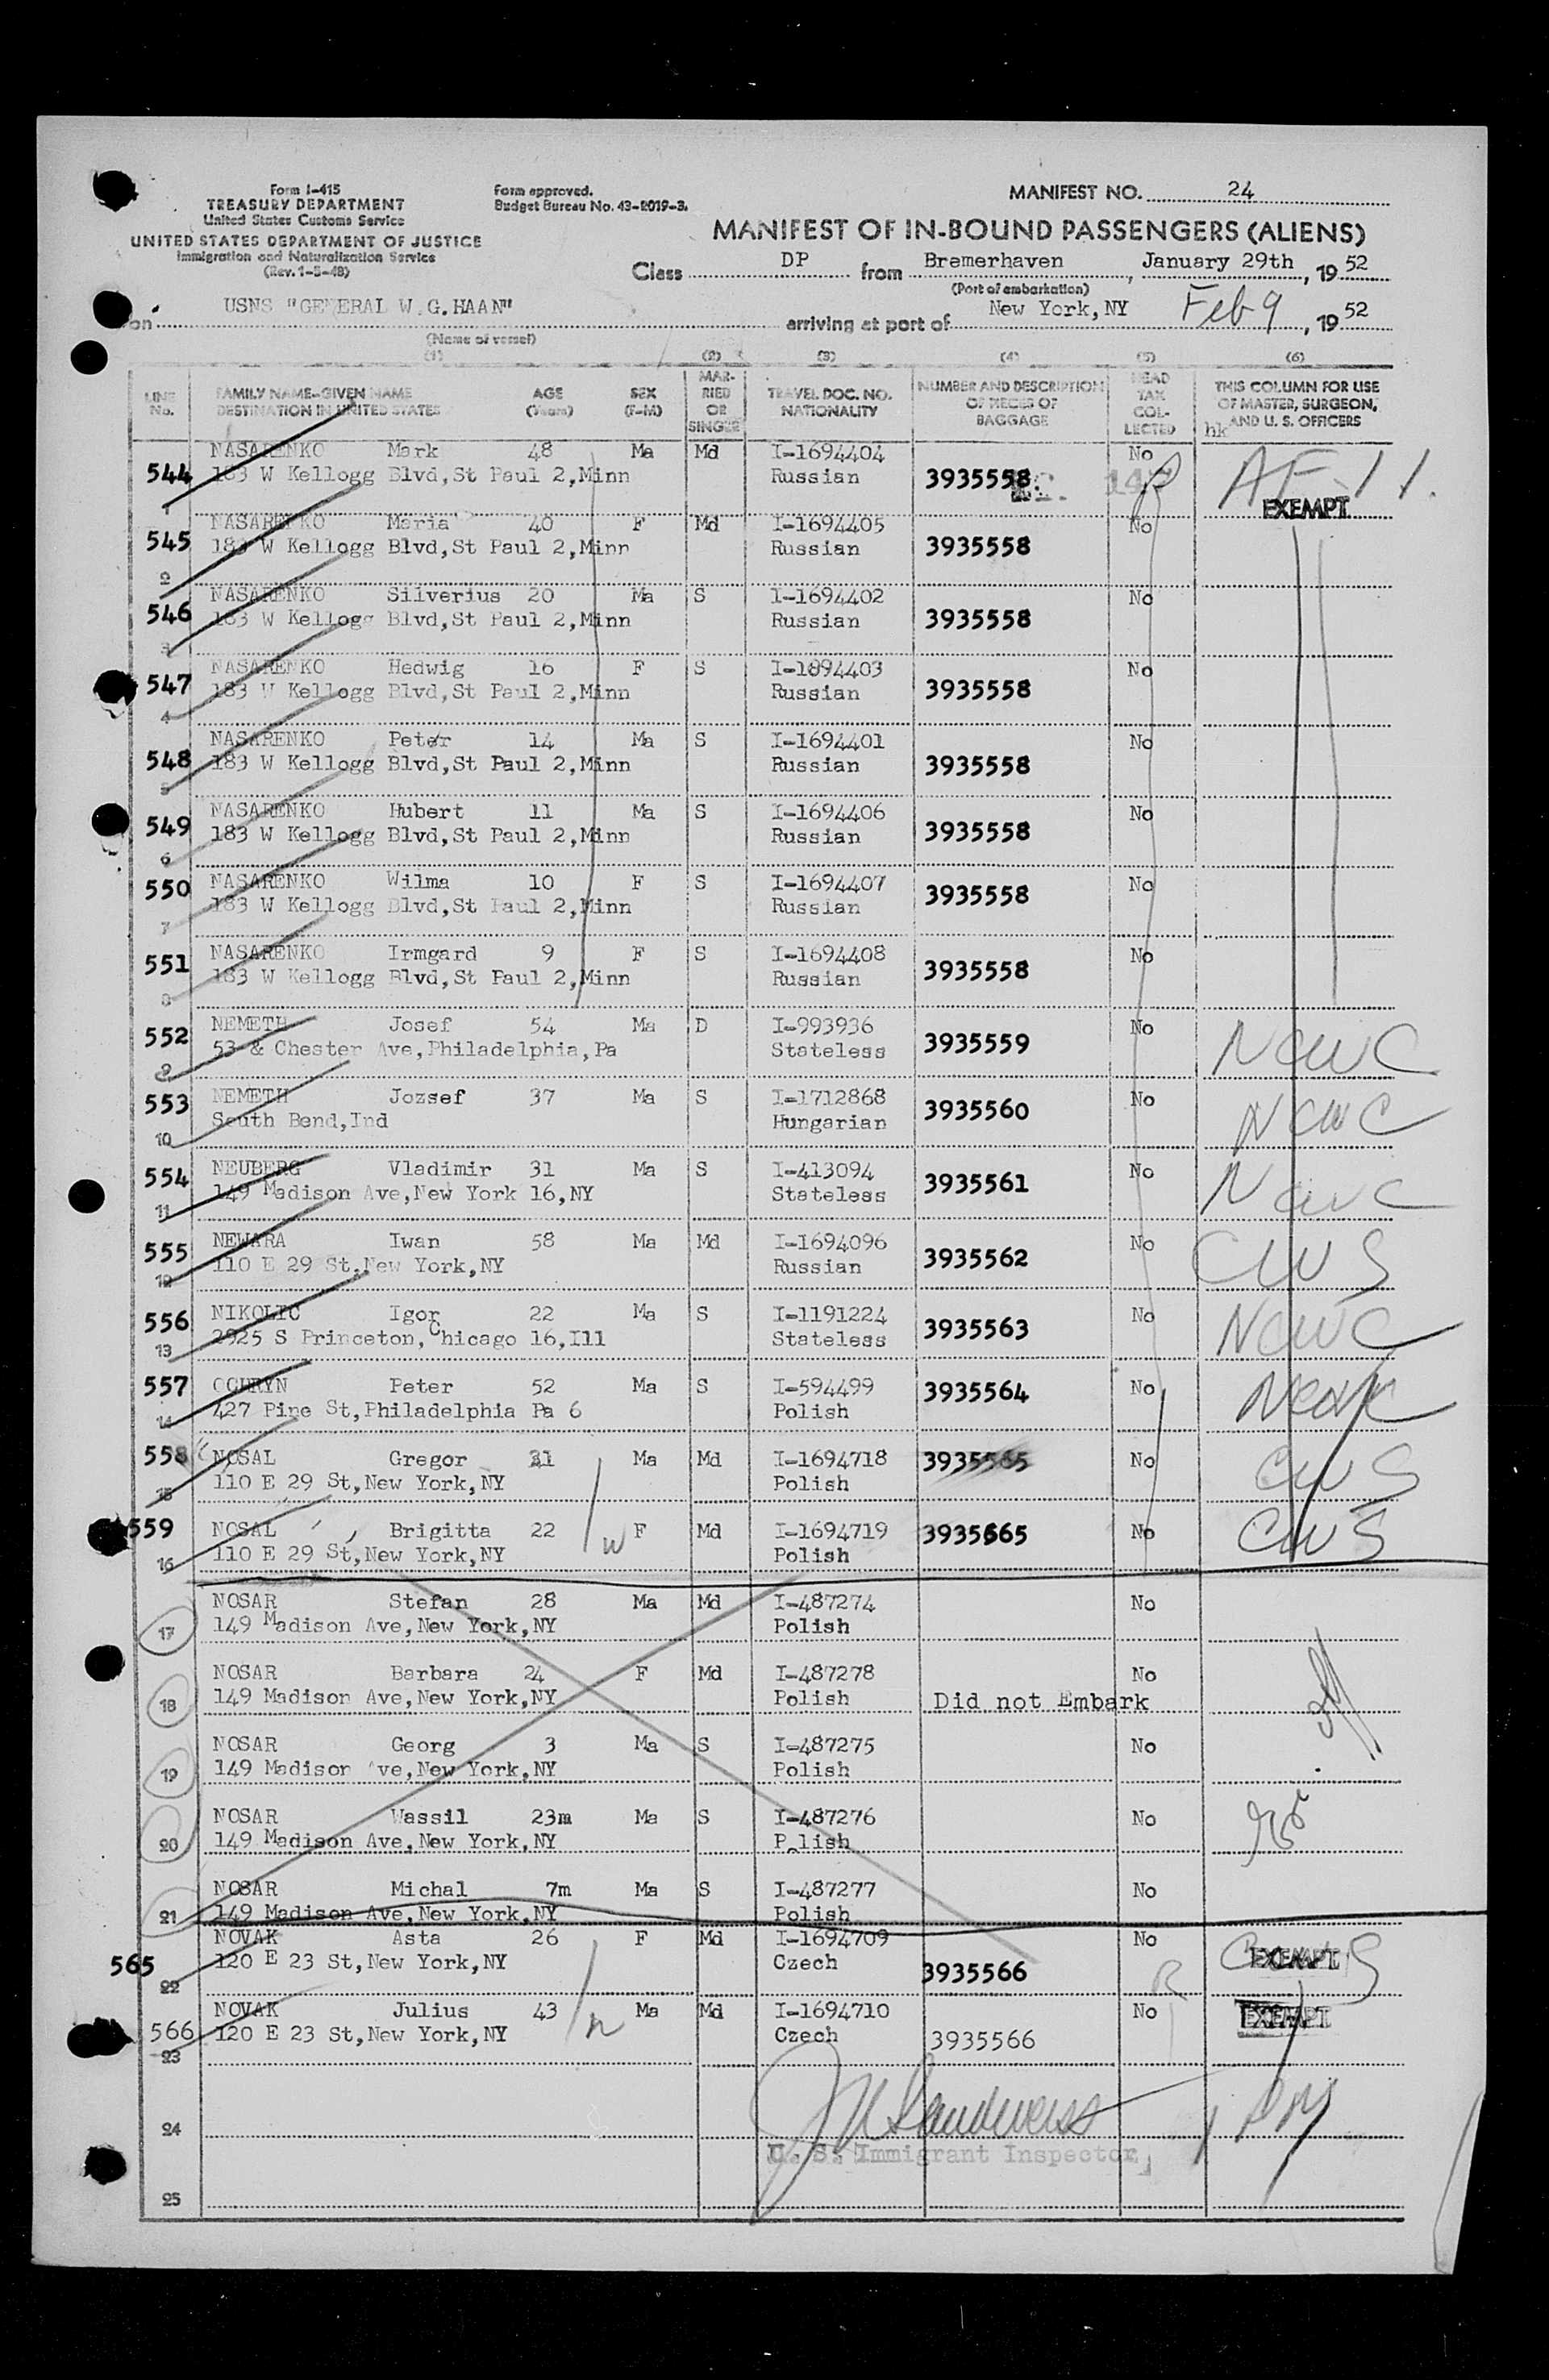 Form I-415
TREASURY DEPARTMENT
United States Customs Service
UNITED STATES DEPARTMENT OF JUSTICE
Immigration and Naturalization Service
(Rev. 1-5-48)
Form approved.
Budget Bureau No. 43-R019-3.
MANIFEST NO. 24
MANIFEST OF IN-BOUND PASSENGERS (ALIENS)
Class DP from Bremerhaven, January 29th, 19 52
(Port of embarkation)
on USNS "GENERAL W.G.HAAN" arriving at port of New York,NY Feb 9, 19 52
(Name of vessel)
(1) (2) (3) (4) (5) (6)
LINE No. FAMILY NAME-GIVEN NAME DESTINATION IN UNITED STATES AGE (Years) SEX (F-M) MARRIED OR SINGLE TRAVEL DOC. NO. NATIONALITY NUMBER AND DESCRIPTION OF PIECES OF BAGGAGE HEAD TAX COLLECTED THIS COLUMN FOR USE OF MASTER, SURGEON, AND U. S. OFFICERS
hk
544 NASARENKO Mark 48 Ma Md I-1694404 No
1 183 W Kellogg Blvd,St Paul 2,Minn Russian 3935558 EXEMPT
545 NASARENKO Maria 40 F Md I-1694405 No
2 183 W Kellogg Blvd,St Paul 2,Minn Russian 3935558
546 NASARENKO Silverius 20 Ma S I-1694402 No
3 183 W Kellogg Blvd,St Paul 2,Minn Russian 3935558
547 NASARENKO Hedwig 16 F S I-1894403 No
4 183 W Kellogg Blvd,St Paul 2,Minn Russian 3935558
548 NASARENKO Peter 14 Ma S I-1694401 No
5 183 W Kellogg Blvd,St Paul 2,Minn Russian 3935558
549 NASARENKO Hubert 11 Ma S I-1694406 No
6 183 W Kellogg Blvd,St Paul 2,Minn Russian 3935558
550 NASARENKO Wilma 10 F S I-1694407 No
7 183 W Kellogg Blvd,St Paul 2,Minn Russian 3935558
551 NASARENKO Irmgard 9 F S I-1694408 No
8 183 W Kellogg Blvd,St Paul 2,Minn Russian 3935558
552 NEMETH Josef 54 Ma D I-993936 No
9 53 & Chester Ave,Philadelphia,Pa Stateless 3935559 NCWC
553 NEMETH Jozsef 37 Ma S I-1712868 No
10 South Bend,Ind Hungarian 3935560 NCWC
554 NEUBERG Vladimir 31 Ma S I-413094 No
11 149 Madison Ave,New York 16,NY Stateless 3935561 NCWC
555 NEWARA Iwan 58 Ma Md I-1694096 No
12 110 E 29 St,New York,NY Russian 3935562 CWS
556 NIKOLIC Igor 22 Ma S I-1191224 No
13 2925 S Princeton,Chicago 16,Ill Stateless 3935563 NCWC
557 OCHRYN Peter 52 Ma S I-594499 No
14 427 Pine St,Philadelphia Pa 6 Polish 3935564 NCWC
558 NOSAL Gregor 31 Ma Md I-1694718 No
15 110 E 29 St,New York,NY Polish 3935565 CWS
559 NOSAL Brigitta 22 W F Md I-1694719 3935565 No
16 110 E 29 St,New York,NY Polish CWS
NOSAR Stefan 28 Ma Md I-487274 No
17 149 Madison Ave,New York,NY Polish
NOSAR Barbara 24 F Md I-487278 No
18 149 Madison Ave,New York,NY Polish Did not Embark
NOSAR Georg 3 Ma S I-487275 No
19 149 Madison Ave,New York,NY Polish
NOSAR Wassil 23m Ma S I-487276 No
20 149 Madison Ave,New York,NY Polish
NOSAR Michal 7m Ma S I-487277 No
21 149 Madison Ave,New York,NY Polish
NOVAK Asta 26 F Md I-1694709 No
565 22 120 E 23 St,New York,NY Czech 3935566 CWS EXEMPT
NOVAK Julius 43 Ma Md I-1694710 No
566 23 120 E 23 St,New York,NY Czech 3935566 EXEMPT
24
U. S. Immigrant Inspector
25